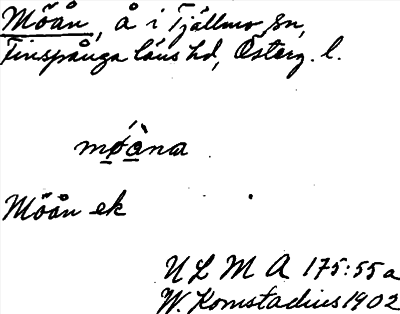 Möån, å i Tjällmo sn,
Finspånga läns hd, Österg. l.
mǿàna
Möån ek
ULMA 175:55a
W. Komstadius 1902